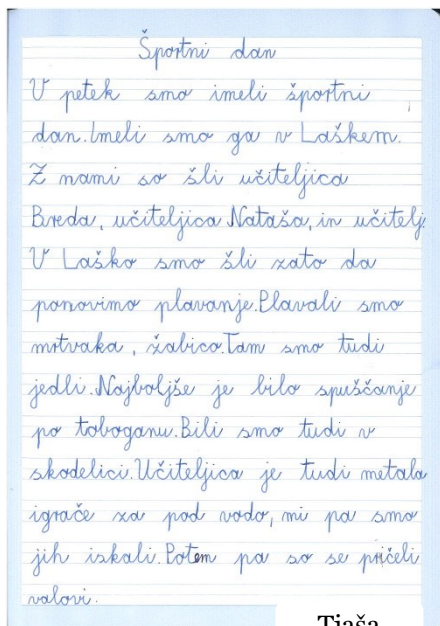 Športni dan
V petek smo imeli športni
dan. Imeli smo ga v Laškem.
Z nami so šli učiteljica
Breda, učiteljica Nataša, in učitelj.
V Laško smo šli zato da
ponovimo plavanje. Plavali smo
mrtvaka, žabico. Tam smo tudi
jedli. Najboljše je bilo spuščanje
po toboganu. Bili smo tudi v
skodelici. Učiteljica je tudi metala
igrače za pod vodo, mi pa smo
jih iskali. Potem pa so se pričeli
valovi.
Tjaša